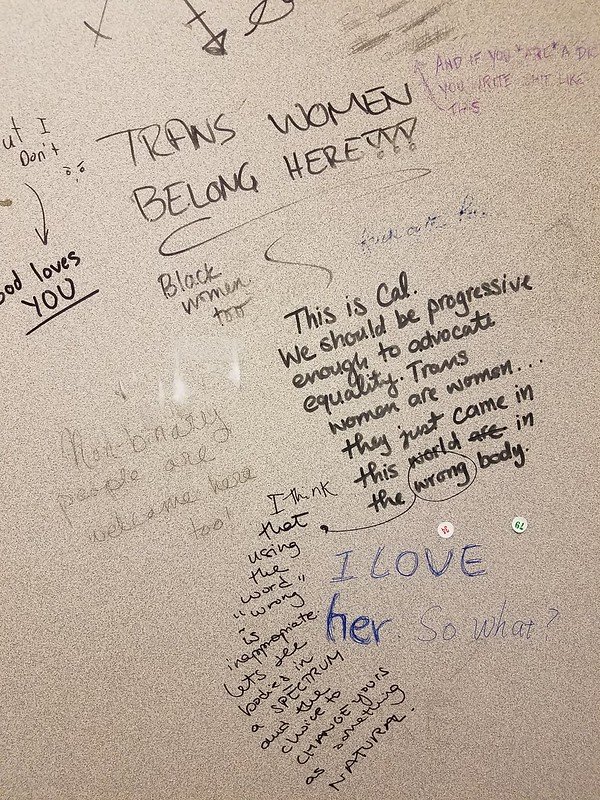 AND IF YOU *ARE* A
YOU WRITE LIKE
THIS
TRANS WOMEN
BELONG HERE!!!
ut I
Don't
loves
YOU
Black
women
too
This is Cal.
We should be progressive
enough to advocate
equality. Trans
women are women...
they just came in
this world are in
the wrong body.
Non-binary
people are
welcome here
too!
I think
that
using
the
word
"wrong"
is
inappropriate.
Lets see
bodies in
a SPECTRUM
and the
choice to
CHANGE YOURS
as something
NATURAL.
79
I LOVE
her. So what?